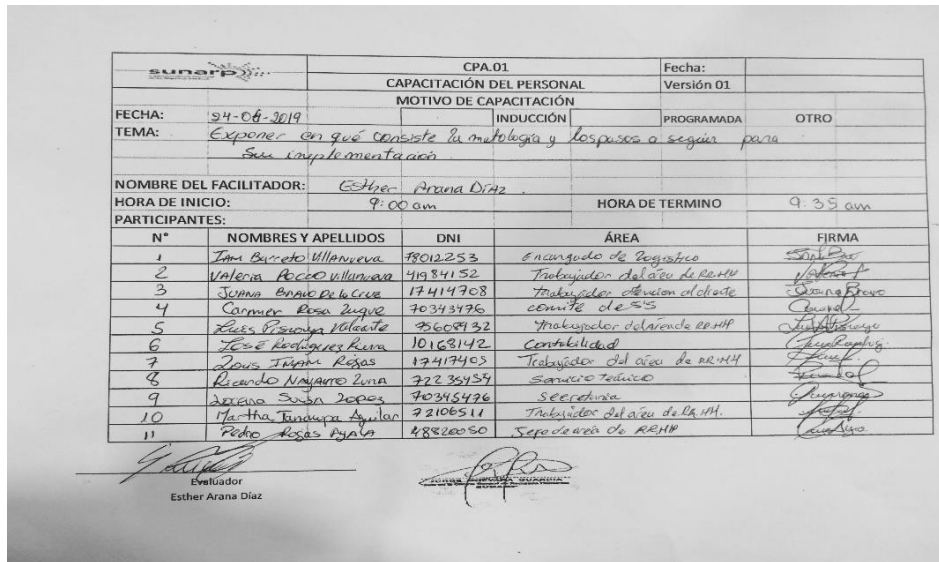 sunarp
CPA.01 Fecha:
CAPACITACIÓN DEL PERSONAL Versión 01
MOTIVO DE CAPACITACIÓN
FECHA: INDUCCIÓN PROGRAMADA OTRO
TEMA: Exponer en qué consiste la metología y los pasos a seguir para
Su implementación.
NOMBRE DEL FACILITADOR: Esther Arana Díaz.
HORA DE INICIO: 9:00 am HORA DE TERMINO 9:35 am
PARTICIPANTES:
N° NOMBRES Y APELLIDOS DNI ÁREA FIRMA
1 Barreto Villanueva 78012253 Encargado de Logistica
2 Valeria Villanueva 41984152 Trabajador del area de RR.HH
3 Juana Bravo De la Cruz 17414708 Trabajador atencion al cliente
4 Carmen Rosa 70343476 comité de SS
5 Luis Trabajador del area de RR.HH
6 José Rodriguez 10168142 Contabilidad
7 Rojas 17417405 Trabajador del area de RR.HH
8 Ricardo Navarro Luna 72235454 Servicio Técnico
9 Lopez 70345476 Secretaria
10 Martha Aguilar 72106511 Trabajador del area de RR.HH.
11 Pedro Rojas Ayala 48820050 Jefe de area de RR.HH
Evaluador
Esther Arana Díaz